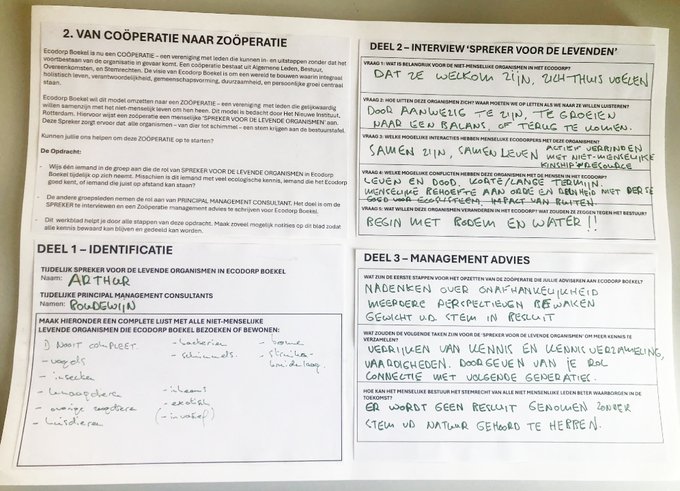 2. VAN COÖPERATIE NAAR ZOÖPERATIE
Ecodorp Boekel is nu een COÖPERATIE – een vereniging met leden die kunnen in- en uitstappen zonder dat het
voortbestaan van de organisatie in gevaar komt. Een coöperatie bestaat uit Algemene Leden, Bestuur,
Overeenkomsten, en Stemrechten. De visie van Ecodorp Boekel is om een wereld te bouwen waarin integraal
holistisch leven, verantwoordelijkheid, gemeenschapsvorming, duurzaamheid, en persoonlijke groei centraal
staan.
Ecodorp Boekel wil dit model omzetten naar een ZOÖPERATIE – een vereniging met leden die gelijkwaardig
willen samenzijn met het niet-menselijk leven om hen heen. Dit model is bedacht door Het Nieuwe Instituut,
Rotterdam. Hiervoor wijst een zoöperatie een menselijke 'SPREKER VOOR DE LEVENDE ORGANISMEN' aan.
Deze Spreker zorgt ervoor dat alle organismen – van dier tot schimmel – een stem krijgen aan de bestuurstafel.
Kunnen jullie ons helpen om deze ZOÖPERATIE op te starten?
De Opdracht:
- Wijs één iemand in de groep aan die de rol van SPREKER VOOR DE LEVENDE ORGANISMEN in Ecodorp
Boekel tijdelijk op zich neemt. Misschien is dit iemand met veel ecologische kennis, iemand die het Ecodorp
goed kent, of iemand die juist op afstand kan staan?
- De andere groepsleden nemen de rol aan van PRINCIPAL MANAGEMENT CONSULTANT. Het doel is om de
SPREKER te interviewen en een Zoöperatie management advies te schrijven voor Ecodorp Boekel.
- Dit werkblad helpt je door alle stappen van deze opdracht. Maak zoveel mogelijk notities op dit blad zodat
alle kennis bewaard kan blijven en gedeeld kan worden.
DEEL 1 – IDENTIFICATIE
TIJDELIJK SPREKER VOOR DE LEVENDE ORGANISMEN IN ECODORP BOEKEL
Naam: ARTHUR
TIJDELIJKE PRINCIPAL MANAGEMENT CONSULTANTS
Namen: BOUDEWIJN
MAAK HIERONDER EEN COMPLETE LIJST MET ALLE NIET-MENSELIJKE
LEVENDE ORGANISMEN DIE ECODORP BOEKEL BEZOEKEN OF BEWONEN:
NOOIT COMPLEET
- vogels
- insecten
- knaagdieren
- overige zoogdieren
- huisdieren
- bacteriën
- schimmels
- inheems
- exotisch
(- invasief)
- bomen
- struiken
- kruidenlaag
DEEL 2 – INTERVIEW 'SPREKER VOOR DE LEVENDEN'
VRAAG 1: WAT IS BELANGRIJK VOOR DE NIET-MENSELIJKE ORGANISMEN IN HET ECODORP?
DAT ZE WELKOM ZIJN, ZICH THUIS VOELEN
VRAAG 2: HOE UITEN DEZE ORGANISMEN ZICH? WAAR MOETEN WE OP LETTEN ALS WE NAAR ZE WILLEN LUISTEREN?
DOOR AANWEZIG TE ZIJN, TE GROEIEN
NAAR EEN BALANS, OF TERUG TE KOMEN.
VRAAG 3: WELKE MOGELIJKE INTERACTIES HEBBEN MENSELIJKE ECODORPERS MET DEZE ORGANISMEN?
SAMEN ZIJN, SAMEN LEVEN ACTIEF VERBINDEN
MET NIET-MENSELIJKE
KINSHIP ≠ RESOURCE
VRAAG 4: WELKE MOGELIJKE CONFLICTEN HEBBEN DEZE ORGANISMEN MET DE MENSEN IN HET ECODORP?
LEVEN EN DOOD. KORTE/LANGE TERMIJN.
MENSELIJKE BEHOEFTE AAN ORDE EN
GOED VOOR ECOSYSTEEM. IMPACT VAN BUITEN.
VRAAG 5: WAT WILLEN DEZE ORGANISMEN VERANDEREN IN HET ECODORP? WAT ZOUDEN ZE ZEGGEN TEGEN HET BESTUUR?
BEGIN MET BODEM EN WATER!!
DEEL 3 – MANAGEMENT ADVIES
WAT ZIJN DE EERSTE STAPPEN VOOR HET OPZETTEN VAN DE ZOÖPERATIE DIE JULLIE ADVISEREN AAN ECODORP BOEKEL?
NADENKEN OVER ONAFHANKELIJKHEID
MEERDERE PERSPECTIEVEN BEWAKEN
GEWICHT VD STEM IN BESLUIT
WAT ZOUDEN DE VOLGENDE TAKEN ZIJN VOOR DE 'SPREKER VOOR DE LEVENDE ORGANISMEN' OM MEER KENNIS TE
VERZAMELEN?
VERRIJKEN VAN KENNIS EN KENNISVERZAMELING,
VAARDIGHEDEN. DOORGEVEN VAN JE ROL
CONNECTIE MET VOLGENDE GENERATIES.
HOE KAN HET MENSELIJKE BESTUUR HET STEMRECHT VAN ALLE NIET MENSENLIJKE LEDEN BETER WAARBORGEN IN DE
TOEKOMST?
ER WORDT GEEN BESLUIT GENOMEN ZONDER
STEM VD NATUUR GEHOORD TE HEBBEN.